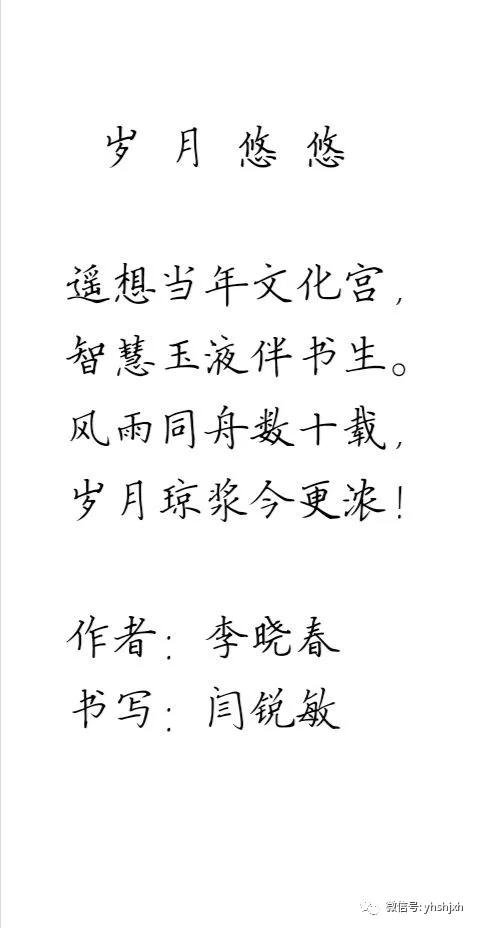 岁月悠悠
遥想当年文化宫，
智慧玉液伴书生。
风雨同舟数十载，
岁月琼浆今更浓！
作者：李晓春
书写：闫锐敏
微信号: yhshjxh